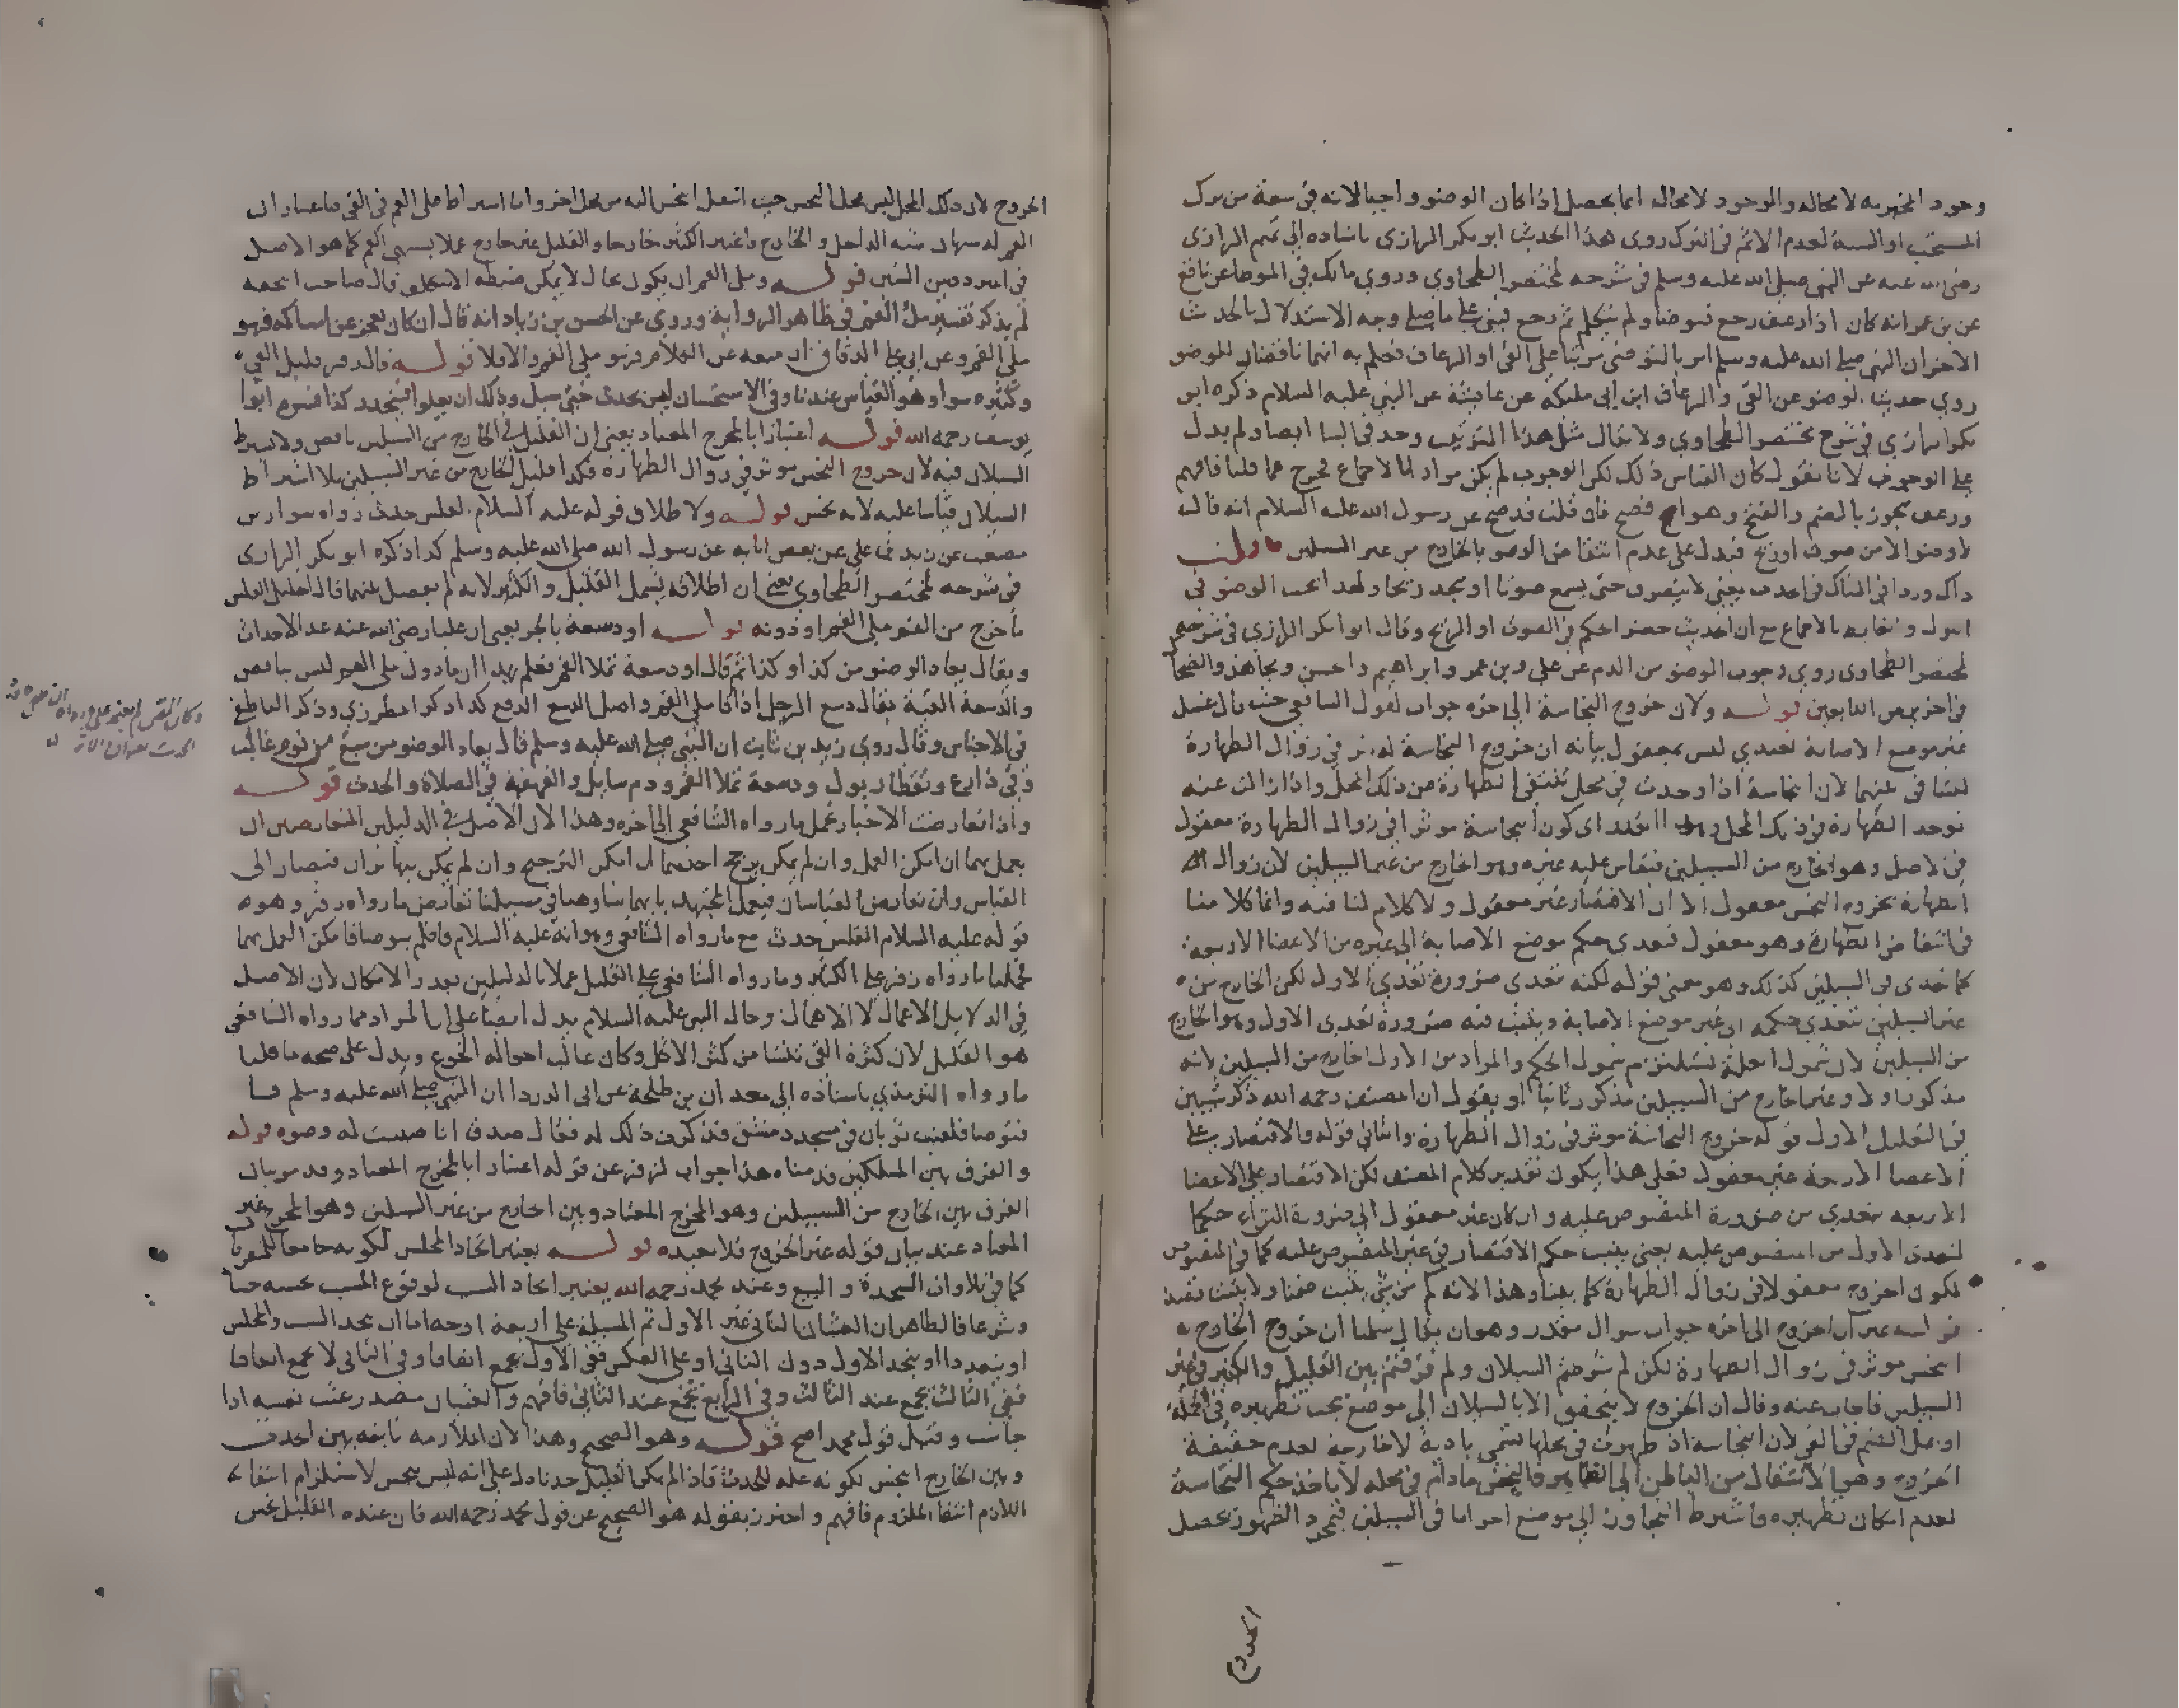 وجود المخبر به لا محالة والموجود لا محالة انما يحصل اذا كان الوضوء واجبا لانه في سعة من ترك
المستحب او السنة لعدم الاثم في الترك روى هذا الحديث ابو بكر الرازي باسناده الى تميم الداري
رضي الله عنه عن النبي صلى الله عليه وسلم في شرحه لمختصر الطحاوي وروي مالك في الموطا عن نافع
عن بن عمر انه كان اذا رعف رجع فتوضا ولم يتكلم ثم رجع فبنى على ما صلى وجه الاستدلال بالحديث
الاخر ان النبي صلى الله عليه وسلم امر بالتوضي مرتبا على القي او الرعاف فعلم به انهما ناقضان للوضو
روي حديث الوضو عن القي والرعاف ابن ابي مليكة عن عايشة عن النبي عليه السلام ذكره ابو
بكر الرازي في شرح مختصر الطحاوي ولا يقال مثل هذا الترتيب وجد في البنا ايضا ولم يدل
على الوجوب لانا نقول كان القياس ذلك لكن الوجوب لم يكن مرادا بالاجماع فخرج عما قلنا فافهم
ورعف يجوز بالضم والفتح وهو افصح فان قلت قد صح عن رسول الله عليه السلام انه قال
لا وضوء الا من صوت او ريح فيدل على عدم انتقاض الوضو بالخارج من غير السبيلين قلت
ذاك ورد في الشاك في الحدث يعني لا ينصرف حتى يسمع صوتا او يجد ريحا ولهذا يجب الوضو في
البول والغايط بالاجماع مع ان الحديث حصر الحكم في الصوت او الريح وقال ابو بكر الرازي في شرحه
لمختصر الطحاوى روي وجوب الوضو من الدم عن علي وبن عمر وابراهيم والحسن ومجاهد والضحاك
في اخرين من التابعين قوله ولان خروج النجاسة الى اخره جواب لقول الشافعي حيث قال غسل
غير موضع الاصابة تعبدي ليس بمعقول بيانه ان خروج النجاسة له اثر في زوال الطهارة
لتنافي بينهما لان النجاسة اذا وجدت في محل تنتفي الطهارة من ذلك المحل واذا زالت عنه
توجد الطهارة في ذلك المحل وهذا القدر اي كون النجاسة موثرا في زوال الطهارة معقول
في الاصل وهو الخارج من السبيلين فيقاس عليه غيره وهو الخارج من غير السبيلين لان زوال
الطهارة بخروج النجس معقول الا ان الاقتصار غير معقول ولا كلام لنا فيه وانما كلامنا
في انتقاض الطهارة وهو معقول فتعدى حكم موضع الاصابة الى غيره من الاعضا الاربعة
كما تعدى في السبيلين كذلك وهو معنى قوله لكنه تعدى ضرورة تعدي الاول لكن الخارج من
غير السبيلين تتعدي حكمه الى غير موضع الاصابة ويثبت فيه ضرورة تعدى الاول وهو الخارج
من السبيلين لان شمول العلة يستلزم شمول الحكم والمراد من الاول الخارج من السبيلين لانه
مذكور اولا وغير الخارج من السبيلين مذكور ثانيا او يقول ان المصنف رحمه الله ذكر شيين
في التعليل الاول قوله خروج النجاسة موثر في زوال الطهارة والثاني قوله والاقتصار على
الاعضا الاربعة غير معقول فعلى هذا يكون تقدير كلام المصنف لكن الاقتصار على الاعضا
الاربعه يتعدي من ضرورة المنصوص عليه وان كان غير معقول الى
لتعدى الاول من المنصوص عليه يعنى يثبت حكم الاقتصار في غير المنصوص عليه كما في المنصوص
لكون الخروج معقولا في زوال الطهارة كما بينا وهذا لانه كم من شي يثبت ضمنا ولا يثبت قصدا
قوله غير ان الخروج الى اخره جواب سوال مقدر وهو ان يقال سلمنا ان خروج الخارج
النجس موثر في زوال الطهارة لكن لم شرطتم السيلان ولم فرقتم بين القليل والكثير في غير
السبيلين فاجاب عنه وقال ان الخروج لا يتحقق الا بالسيلان الى موضع يجب تطهيره في الجملة
او بملء الفم في القي لان النجاسة اذا ظهرت في محلها تسمى بادية لا خارجة لعدم حقيقة
الخروج وهو الانتقال من الباطن الى الظاهر فالنجس مادام في محله لا ياخذ حكم النجاسة
لعدم امكان تطهيره فاشترط التجاوز الى موضع اخر اما في السبيلين فبمجرد الظهور يحصل
الخروج لان ذلك المحل ليس محل النجس حيث انتقل النجس اليه من محل اخر وانما اشترط ملى الفم في القي باعتبار ان
الفم له شبهان شبه الداخل والخارج فاعتبر الكثير خارجا والقليل غير خارج عملا بشبهي الفم كما هو الاصل
في المتردد بين الشيين قوله وملى الفم ان يكون بحال لا يمكن ضبطه الا بتكلف قال صاحب التحفة
لم يذكر تفسير ملء الفم في ظاهر الرواية وروي عن الحسن بن زياد انه قال ان كان يعجز عن امساكه فهو
ملى الفم وعن ابي علي الدقاق ان منعه عن الكلام فهو ملى الفم والا فلا قوله قال زفر قليل القي
وكثيره سوا وهو القياس عندنا وفي الاستحسان ليس بحدث حتى يسيل
يوسف رحمه الله قوله اعتبارا بالمخرج المعتاد يعنى ان القليل في الخارج من السبيلين ناقض ولا يشترط
السيلان فيه لان خروج النجس موثر في زوال الطهارة فكذا قليل الخارج من غير السبيلين بلا اشتراط
السيلان قياسا عليه لانه نجس قوله ولاطلاق قوله عليه السلام القلس حدث رواه سوار بن
مصعب عن زيد بن علي عن بعض ابايه عن رسول الله صلى الله عليه وسلم كذا ذكره ابو بكر الرازي
في شرحه لمختصر الطحاوي يعنى ان اطلاقه يشمل القليل والكثير لانه لم يفصل بينهما قال الخليل القلس
ما خرج من الفم ملى الفم او دونه قوله او دسعة بالجر يعنى ان عليا رضي الله عنه عد الاحداث
وقال يعاد الوضو من كذا وكذا ثم قال او دسعة تملا الفم فعلم بهذا ان ما دون ملى الفم ليس بناقض
والدسعة القية يقال دسع الرجل اذا قا ملى الفم واصل الدسع الدفع كذا ذكر المطرزي وذكر الناطفي
في الاجناس وقال روي زيد بن ثابت ان النبي صلى الله عليه وسلم قال يعاد الوضو من سبع من نوم غالب
وقي ذارع وتقطار بول ودسعة تملا الفم ودم سايل والقهقهة في الصلاة والحدث قوله
واذا تعارضت الاخبار يحمل ما رواه الشافعي الى اخره وهذا لان الاصل في الدليلين المتعارضين ان
يعمل بهما ان امكن العمل وان لم يمكن يرجح احدهما ان امكن الترجيح وان لم يمكن يتهاتران فيصار الى
القياس وان تعارض القياسان فيعمل المجتهد بايهما شا وهنا في مسيلتنا تعارض ما رواه زفر وهو
قوله عليه السلام القلس حدث مع ما رواه الشافعي وهو انه عليه السلام قا فلم يتوضا فامكن العمل بهما
فحملنا ما رواه زفر على الكثير وما رواه الشافعي على القليل عملا بالدليلين بقدر الامكان لان الاصل
في الدلايل الاعمال لا الاهمال وحال النبي عليه السلام يدل ايضا على ان المراد مما رواه الشافعي
هو القليل لان كثرة القي تنشا من كثرة الاكل وكان غالب احواله الجوع ويدل على صحة ما قلنا
ما رواه الترمذي باسناده الى معدان بن طلحة عن ابي الدردا ان النبي صلى الله عليه وسلم قا
فتوضا فلقيت ثوبان في مسجد دمشق فذكرت ذلك له فقال صدق انا صببت له وضوه قوله
والفرق بين المسلكين قدمناه هذا جواب لزفر عن قوله اعتبارا بالمخرج المعتاد وقد مر بيان
الفرق بين الخارج من السبيلين وهو المخرج المعتاد وبين الخارج من غير السبيلين وهو المخرج غير
المعتاد عند بيان قوله غير ان الخروج فلا نعيده قوله يعتبر اتحاد المجلس لكونه جامعا للمتفرقات
كما في تلاوة السجدة والبيع وعند محمد رحمه الله يعتبر اتحاد السبب لوقوع المسبب بحسبه حسا
وشرعا فالظاهر ان الغثيان الثاني غير الاول ثم المسيلة على اربعة اوجه اما ان يتحد السبب والمجلس
او يتعددا او يتحد الاول دون الثاني او على العكس ففي الاول يجمع اتفاقا وفي الثاني لا يجمع اتفاقا
ففي الثالث يجمع عند الثالث وفي الرابع يجمع عند الثاني فافهم والغثيان مصدر غثت نفسه اذا
جاشت وقيل قول محمد اصح قوله وهو الصحيح وهذا لان الملازمة ثابتة بين الحدث
وبين الخارج النجس لكونه علة للحدث فاذا لم يكن القليل حدثا دل على انه ليس بنجس لاستلزام انتفاء
اللازم انتفا الملزوم فافهم واحترز بقوله هو الصحيح عن قول محمد رحمه الله فان عنده القليل نجس